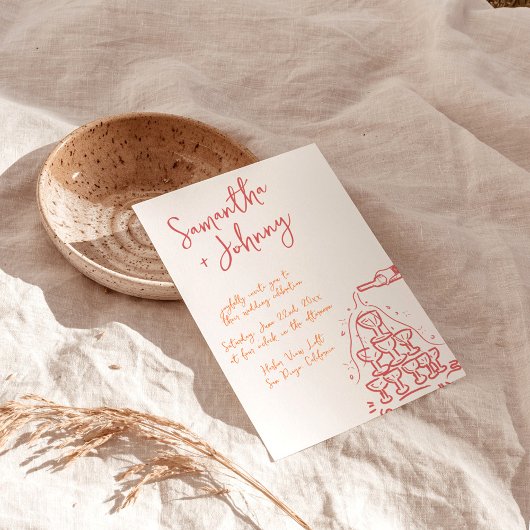 Samantha
+ Johnny
joyfully invite you to
their wedding celebration
Saturday, June 22nd, 20xx
at four o'clock in the afternoon
Harbor View Loft
San Diego, California